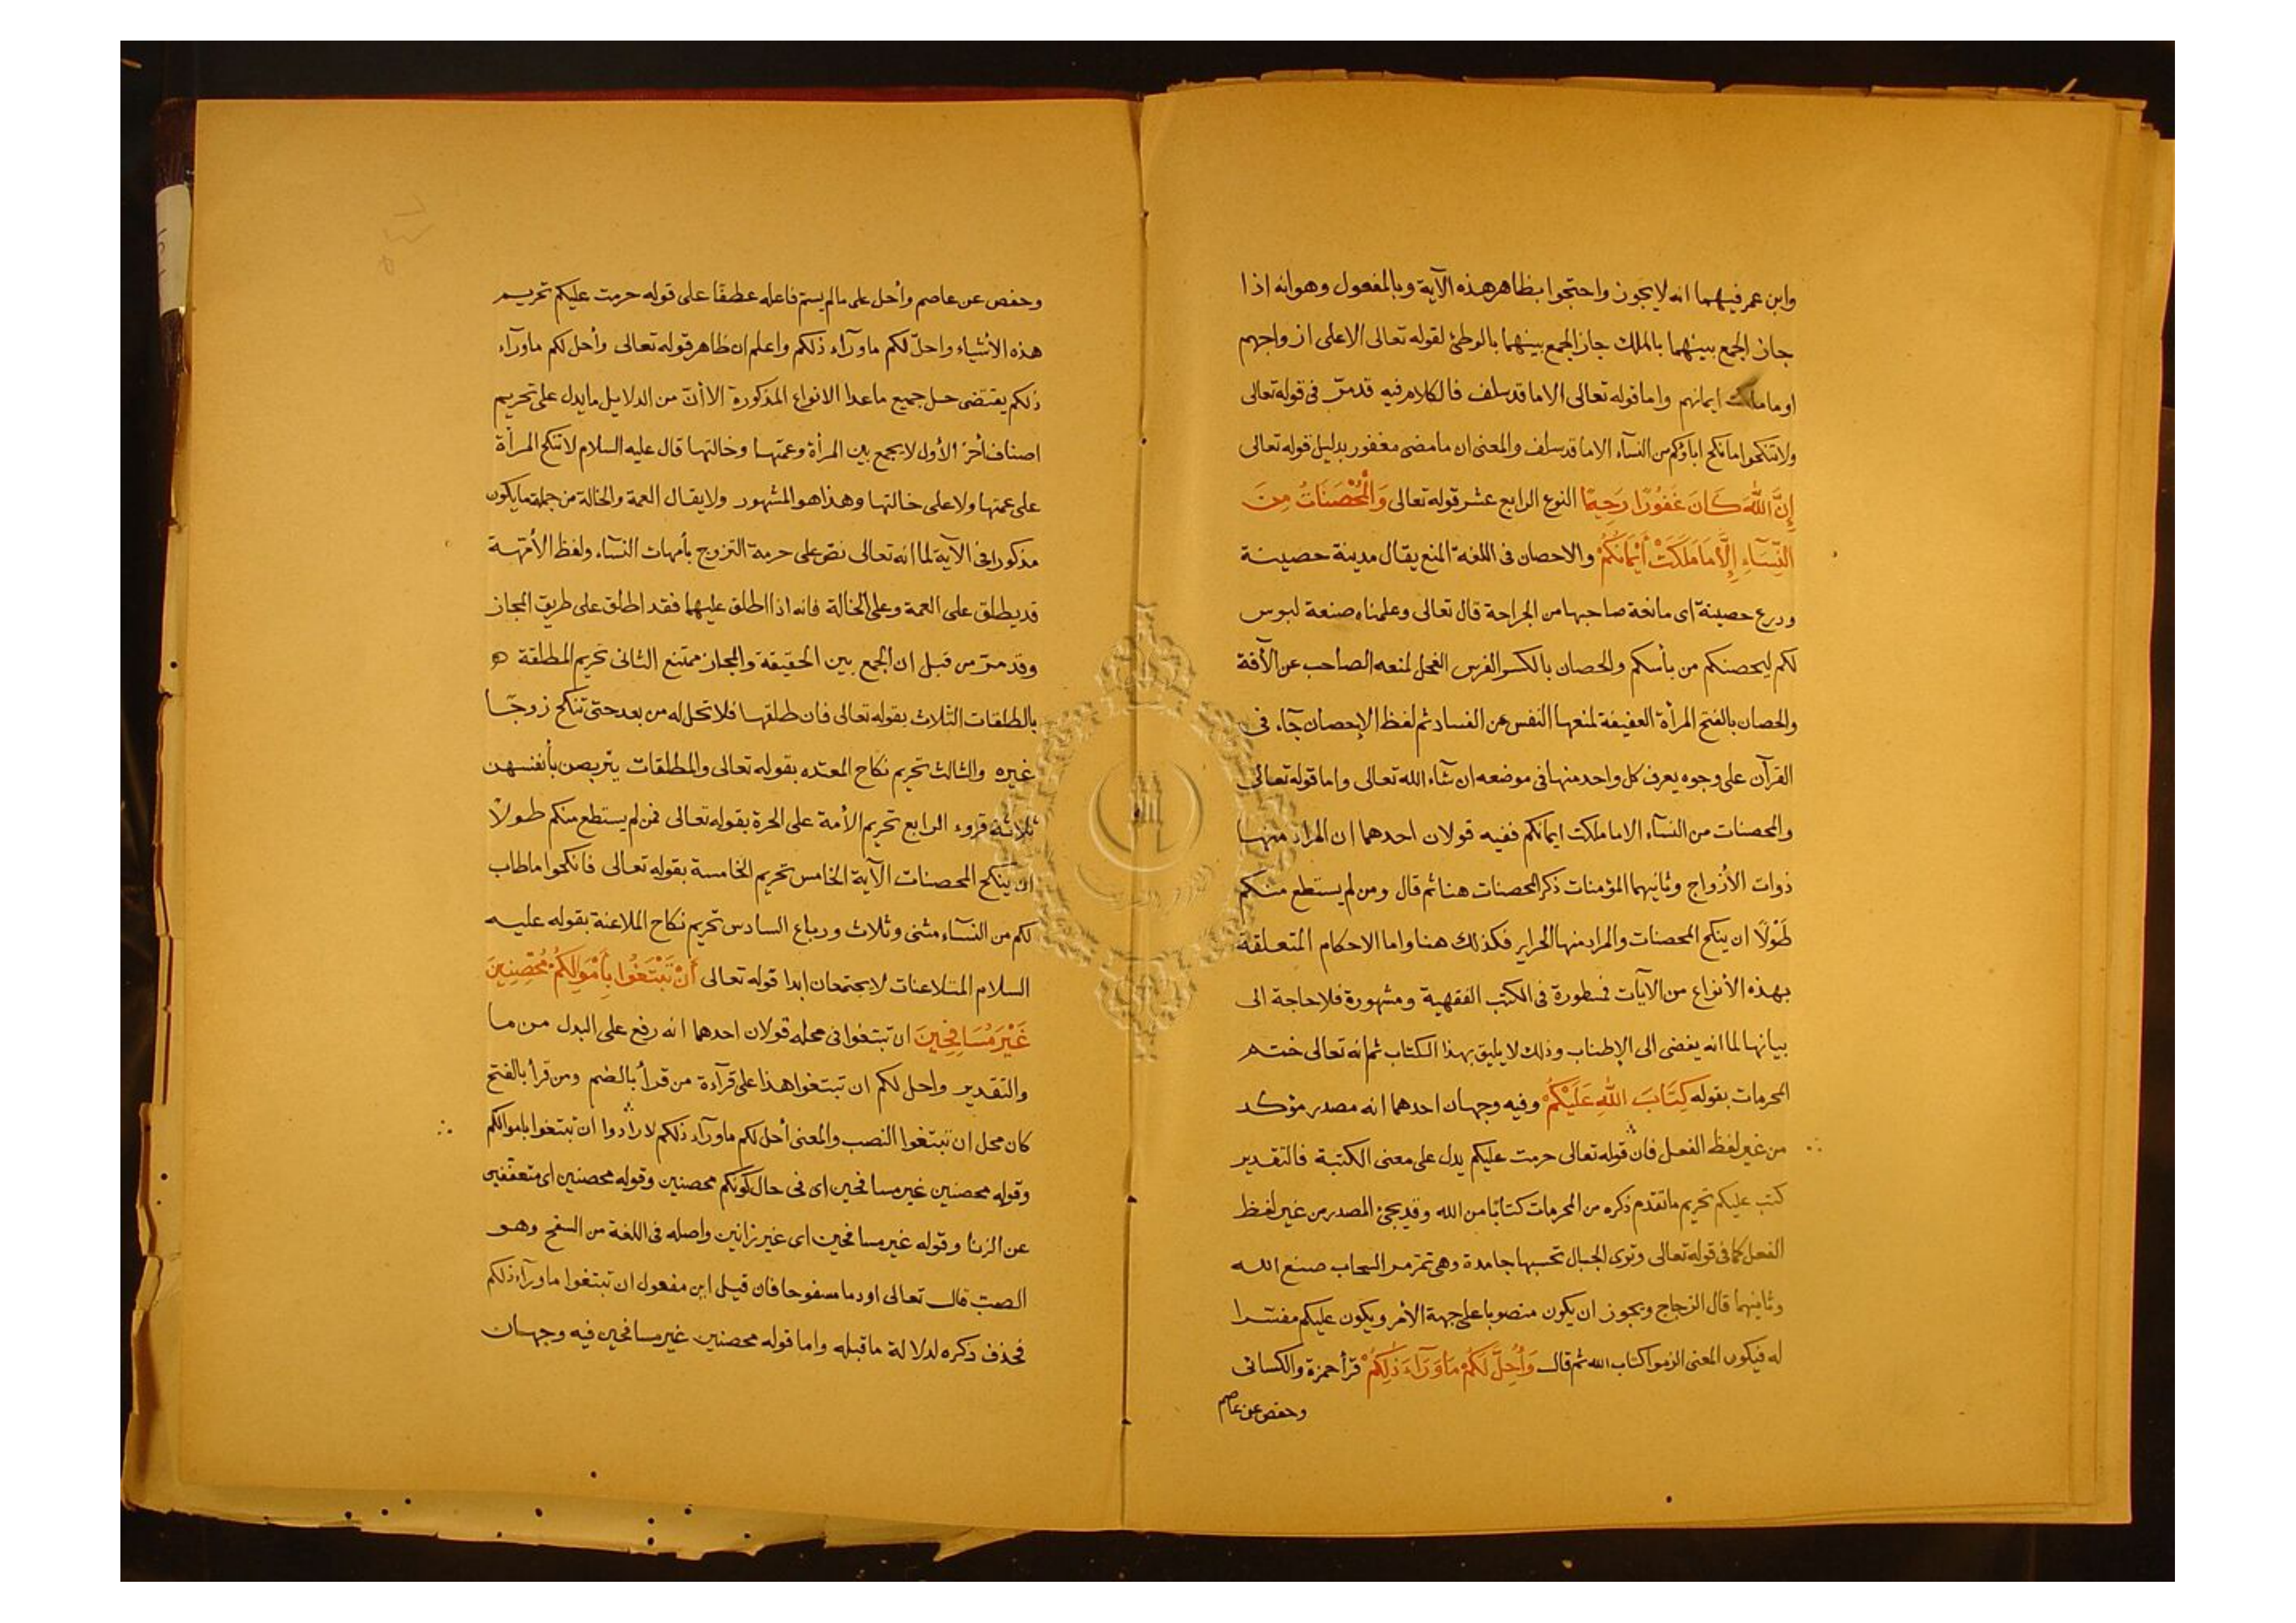 وابن عمر فيهما انه لا يجوز واحتجوا بظاهر هذه الآية وبالمفعول وهوانه اذا
جاز الجمع بينهما بالملك جاز الجمع بينهما بالوطئ لقوله تعالى الا على ازواجهم
او ما ملكت ايمانهم واما قوله تعالى الا ما قد سلف فالكلام فيه قد مرّ فى قوله تعالى
ولا تنكحوا ما نكح اباؤكم من النسآء الا ما قد سلف والمعنى ان ما مضى مغفور بدليل قوله تعالى
إِنَّ اللَّهَ كَانَ غَفُورًا رَحِيمًا النوع الرابع عشر قوله تعالى وَالْمُحْصَنَاتُ مِنَ
النِّسَآءِ إِلَّا مَا مَلَكَتْ أَيْمَانُكُمْ والاحصان فى اللغة المنع يقال مدينة حصينة
ودرع حصينة اى مانعة صاحبها من الجراحة قال تعالى وعلمناه صنعة لبوس
لكم ليحصنكم من بأسكم والحصان بالكسر الفرس الفحل لمنعه الصاحب عن الآفة
والحصان بالفتح المرأة العفيفة لمنعها النفس عن الفساد ثم لفظ الإحصان جآء فى
القرآن على وجوه يعرف كل واحد منها فى موضعه ان شآء الله تعالى واما قوله تعالى
والمحصنات من النسآء الا ما ملكت ايمانكم ففيه قولان احدهما ان المراد منها
ذوات الأزواج وثانيهما المؤمنات ذكر المحصنات هنا ثم قال ومن لم يستطع منكم
طَوْلًا ان ينكح المحصنات والمراد منها الحراير فكذلك هنا واما الاحكام المتعلقة
بهذه الأنواع من الآيات فمسطورة فى الكتب الفقهية ومشهورة فلا حاجة الى
بيانها لما انه يفضى الى الإطناب وذلك لا يليق بهذا الكتاب ثم انه تعالى ختم
المحرمات بقوله كِتَابَ اللَّهِ عَلَيْكُمْ وفيه وجهان احدهما انه مصدر مؤكد
من غير لفظ الفعل فان قوله تعالى حرمت عليكم يدل على معنى الكتبة فالتقدير
كتب عليكم تحريم ما تقدم ذكره من المحرمات كتابًا من الله وقد يجئ المصدر من غير لفظ
الفعل كما فى قوله تعالى وترى الجبال تحسبها جامدة وهى تمر مر السحاب صنع الله
وثانيهما قال الزجاج ويجوز ان يكون منصوبا على جهة الأمر ويكون عليكم مفسّرا
له فيكون المعنى الزموا كتاب الله ثم قال وَأُحِلَّ لَكُمْ مَا وَرَآءَ ذَلِكُمْ قرأ حمزة والكسائى
وحفص عن عاصم
وحفص عن عاصم وأُحل على ما لم يسمّ فاعله عطفًا على قوله حرمت عليكم تحريم
هذه الأشياء واحلّ لكم ما ورآء ذلكم واعلم ان ظاهر قوله تعالى وأحل لكم ما ورآء
ذلكم يقتضى حل جميع ما عدا الانواع المذكورة الا أنّ من الدلايل ما يدل على تحريم
اصناف أخر الأول لا يجمع بين المرأة وعمتها وخالتها قال عليه السلام لا تنكح المرأة
على عمتها ولا على خالتها وهذا هو المشهور ولا يقال العمة والخالة من جملة ما يكون
مذكورا فى الآية لما انه تعالى نصّ على حرمة التزوج بأمهات النسآء ولفظ الأمّهة
قد يطلق على العمة وعلى الخالة فانه اذا اطلق عليهما فقد اطلق على طريق المجاز
وقد مرّ من قبل ان الجمع بين الحقيقة والمجاز ممتنع الثانى تحريم المطلقة
بالطلقات الثلاث بقوله تعالى فان طلقها فلا تحل له من بعد حتى تنكح زوجًا
غيره والثالث تحريم نكاح المعتده بقوله تعالى والمطلقات يتربصن بأنفسهن
ثلاثة قروء الرابع تحريم الأمة على الحرة بقوله تعالى فمن لم يستطع منكم طولًا
ان ينكح المحصنات الآية الخامس تحريم الخامسة بقوله تعالى فانكحوا ما طاب
لكم من النسآء مثنى وثلاث ورباع السادس تحريم نكاح الملاعنة بقوله عليه
السلام المتلاعنات لا يجتمعان ابدا قوله تعالى أَنْ تَبْتَغُوا بِأَمْوَالِكُمْ مُحْصِنِينَ
غَيْرَ مُسَافِحِينَ ان تبتغوا فى محله قولان احدهما انه رفع على البدل من ما
والتقدير واحل لكم ان تبتغوا هذا على قرآءة من قرأ بالضم ومن قرأ بالفتح
كان محل ان تبتغوا النصب والمعنى أحل لكم ما ورآء ذلكم لارادوا ان تبتغوا باموالكم
وقوله محصنين غير مسافحين اى فى حال كونكم محصنين وقوله محصنين اى متعففين
عن الزنا وقوله غير مسافحين اى غير زانين واصله فى اللغة من السفح وهو
الصب قال تعالى او دما مسفوحا فان قيل اين مفعول ان تبتغوا ما ورآء ذلكم
فحذف ذكره لدلالة ما قبله واما قوله محصنين غير مسافحين فيه وجهان